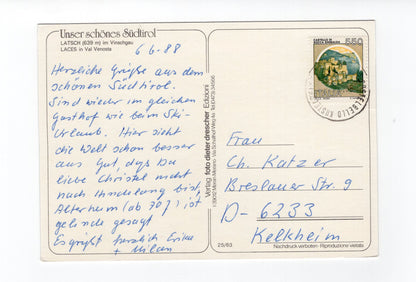 Unser schönes Südtirol
LATSCH (639 m) im Vinschgau
LACES in Val Venosta
6.6.88
Herzliche Grüße aus dem
schönen Südtirol.
Sind wieder im gleichen
Gasthof wie beim Ski-
Urlaub. Hier sieht
die Welt schon besser
aus. Gut, daß Du
liebe Christel nicht
nach
bist,
Altenheim (ab 70?) ist
gelinde gesagt
Es grüßt herzlich Erika
+ Milan
Verlag foto dieter drescher Edizioni
25/63
550
Frau
Ch. Katzer
Breslauer Str. 9
D-6233
Kelkheim
Nachdruck verboten - Riproduzione vietata